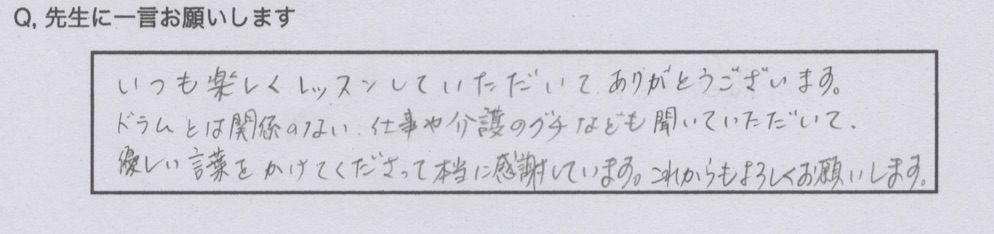 Q, 先生に一言お願いします
いつも楽しくレッスンしていただいて、ありがとうございます。
ドラムとは関係のない、仕事や介護のグチなども聞いていただいて、
優しい言葉をかけてくださって本当に感謝しています。これからもよろしくお願いします。